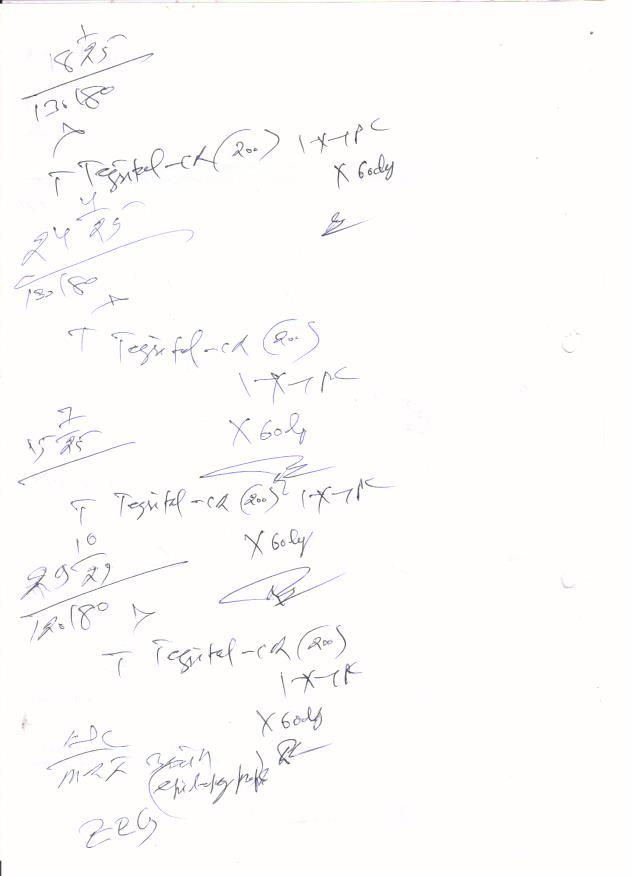 18/1/25
130/80
T Tegrital-CR (200) 1-X-1 PC
X 60dy
24/4/25
130/80
T Tegrital-CR (200)
1-X-1 PC
X 60dy
15/7/25
T Tegrital-CR (200) 1-X-1 PC
X 60dy
29/10/25
120/80
T Tegrital-CR (200)
1-X-1 PC
X 60dy
Adv
MRI Brain
(epilepsy protocol)
EEG